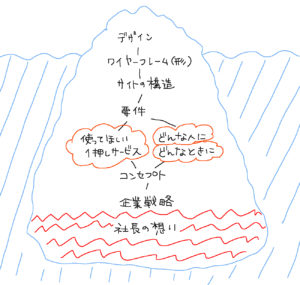 デザイン
ワイヤーフレーム(形)
サイトの構造
要件
使ってほしい
1押しサービス
どんな人に
どんなときに
コンセプト
企業戦略
社長の想い